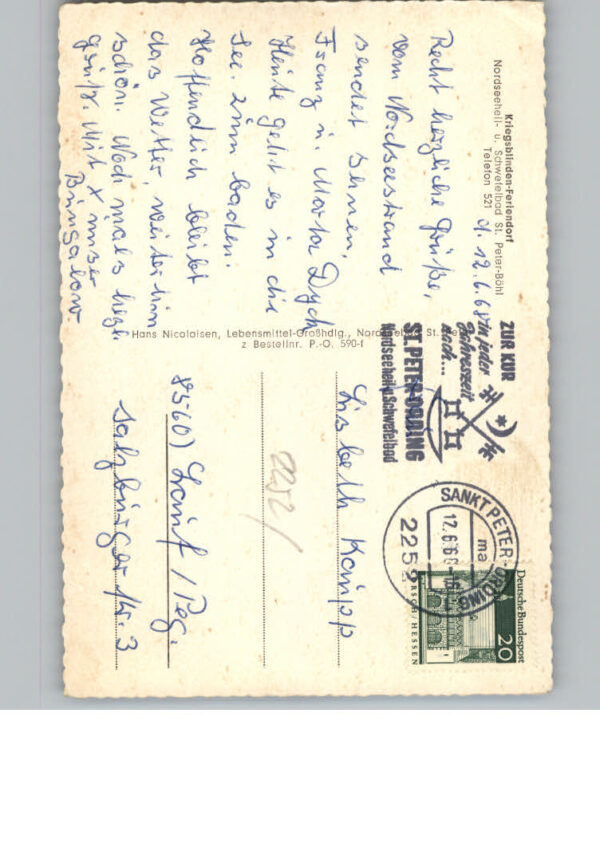 Kriegsblinden-Feriendorf
Nordseeheil- u. Schwefelbad St. Peter-Böhl
Telefon 521
d. 12.6.68
Recht herzliche Grüße,
vom Nordseestrand
sendet Ihnen,
Franz u. Marta Dych
Heute geht es in die
See. zum baden.
Hoffendlich bleibt
das Wetter, weiterhin
schön. Noch mals herzl.
grüße. Mit x unser
Bungalow
Hans Nicolaisen, Lebensmittel-Großhdlg., Nordseebad St. Peter
z Bestellnr. P.-O. 590-f
ZUR KUR
in jeder
Jahreszeit
nach...
ST. PETER-ORDING
Nordseeheil-u.Schwefelbad
SANKT PETER-ORDING
ma
12.6.68-16
2252
Deutsche Bundespost
20
LORSCH/HESSEN
Lisbeth Kampp
2252/
8560) Lauf / Peg.
Salzburger Str. 3